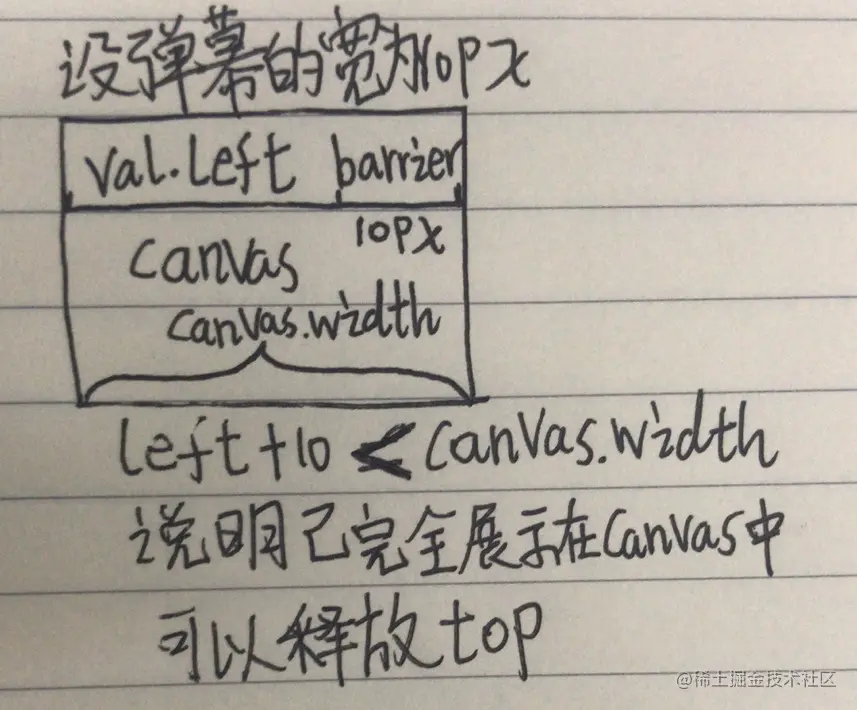 设弹幕的宽为10px
val.left barrier
10px
canvas
canvas.width
left+10 < canvas.width
说明已完全展示在canvas中
可以释放top
@稀土掘金技术社区